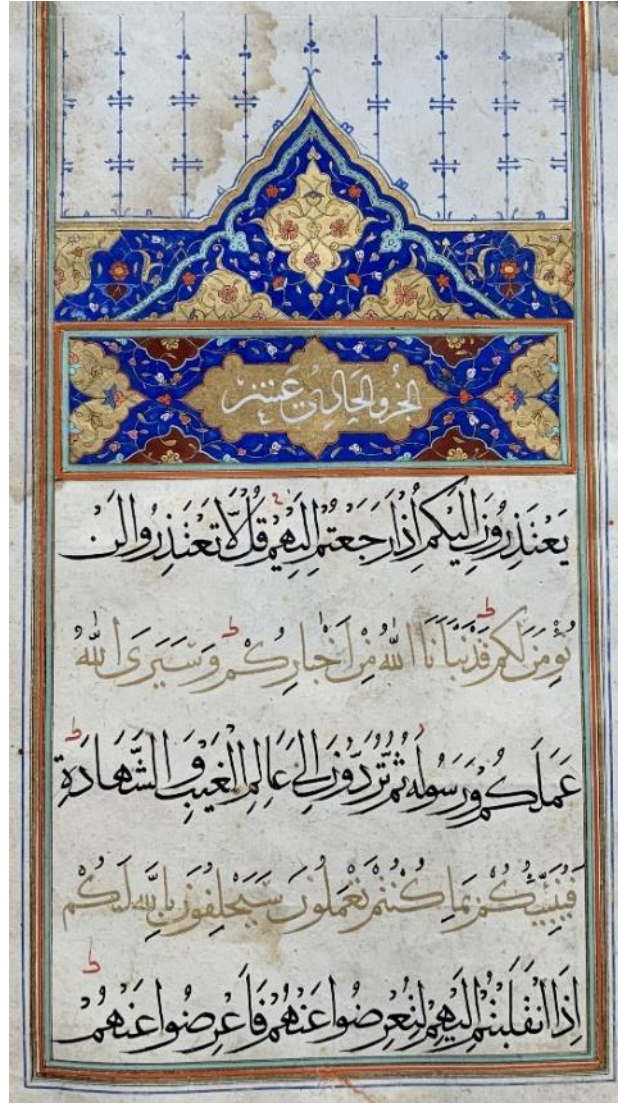 الجزو الحادی عشر
يَعْتَذِرُونَ اِلَيْكُمْ اِذَا رَجَعْتُمْ اِلَيْهِمْ قُلْ لَا تَعْتَذِرُوا لَنْ
نُؤْمِنَ لَكُمْ قَدْ نَبَّاَنَا اللّٰهُ مِنْ اَخْبَارِكُمْ وَسَيَرَى اللّٰهُ
عَمَلَكُمْ وَرَسُولُهُ ثُمَّ تُرَدُّونَ اِلٰى عَالِمِ الْغَيْبِ وَالشَّهَادَةِ
فَيُنَبِّئُكُمْ بِمَا كُنْتُمْ تَعْمَلُونَ سَيَحْلِفُونَ بِاللّٰهِ لَكُمْ
اِذَا انْقَلَبْتُمْ اِلَيْهِمْ لِتُعْرِضُوا عَنْهُمْ فَاَعْرِضُوا عَنْهُمْ